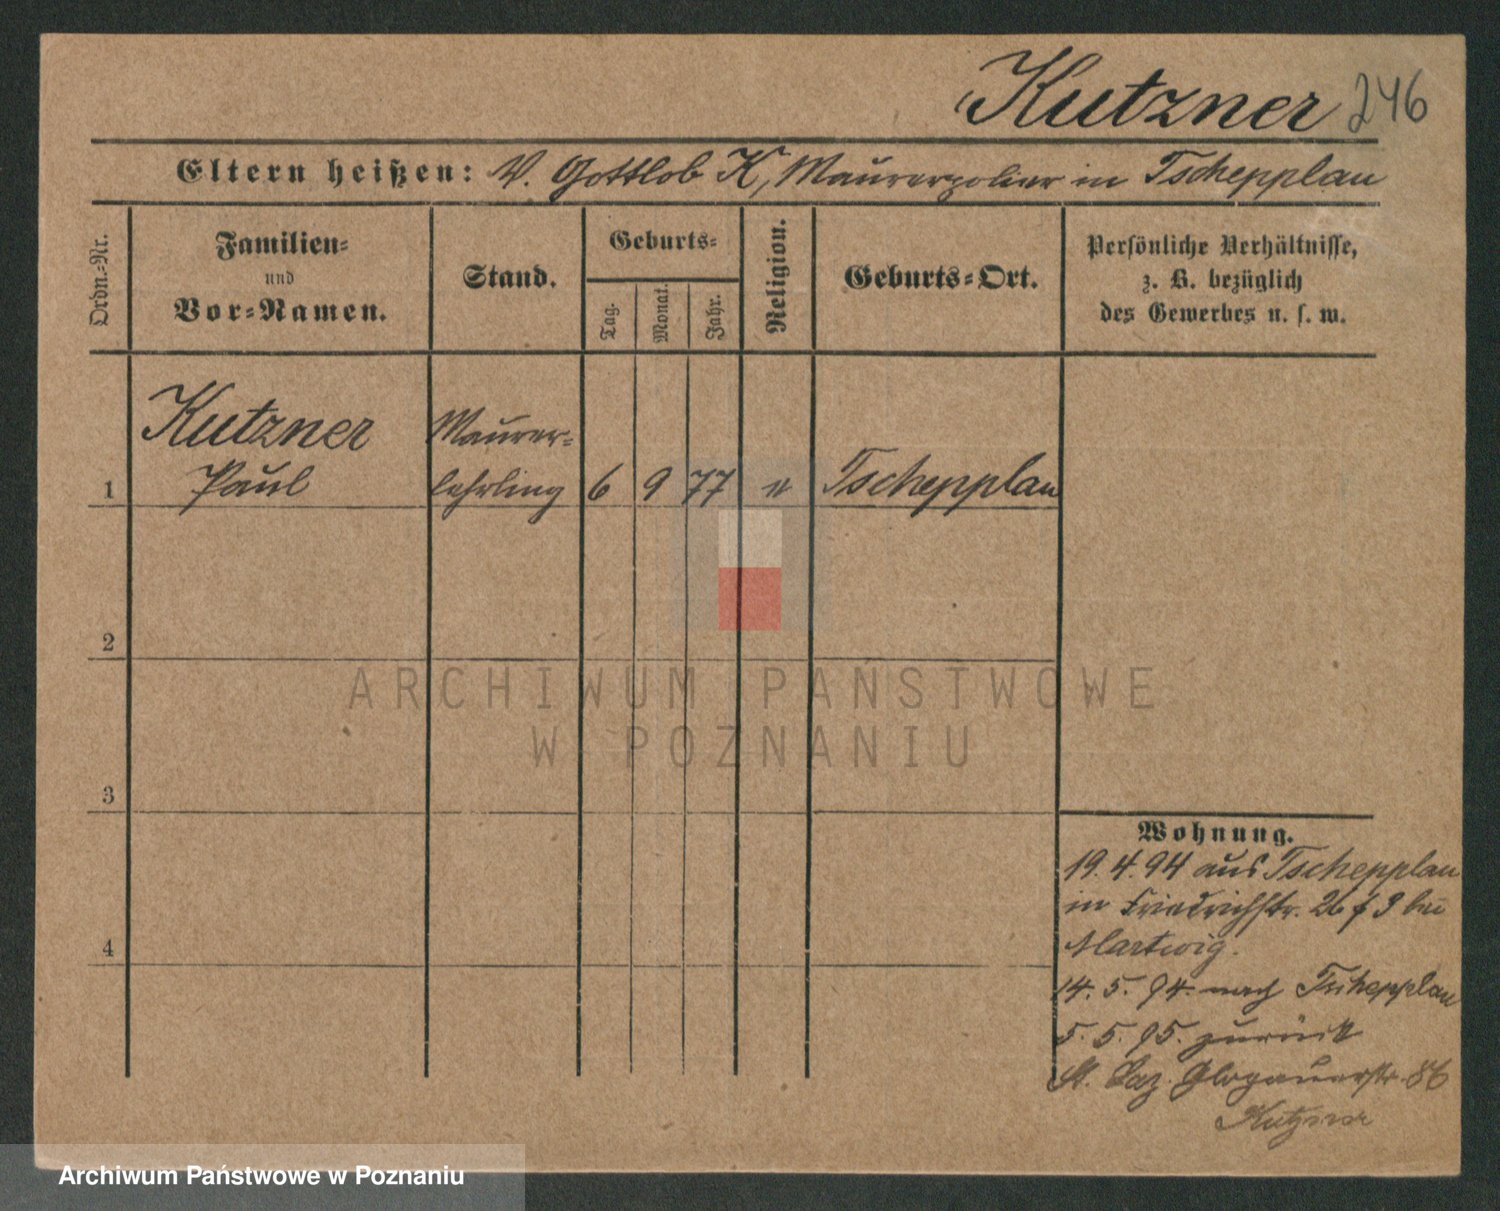 Kutzner 246
Eltern heißen: V. Gottlob K, Maurerpolier in Tschepplau
Ordn.-Nr.
Familien-
und
Vor-Namen.
Stand.
Geburts-
Tag.
Monat.
Jahr.
Religion.
Geburts-Ort.
Persönliche Verhältnisse,
z. B. bezüglich
des Gewerbes u. s. w.
Kutzner
Paul
Maurer-
lehrling
1
6 9 77
Tschepplau
2
3
4
Wohnung.
19. 4. 94 aus Tschepplau
in Friedrichstr. 26 bei
Hartwig.
14. 5. 94. nach Tschepplau
5. 5. 95. zurück
St. Laz. Glogauerstr. 86
Kutzner
ARCHIWUM PAŃSTWOWE
W POZNANIU
Archiwum Państwowe w Poznaniu